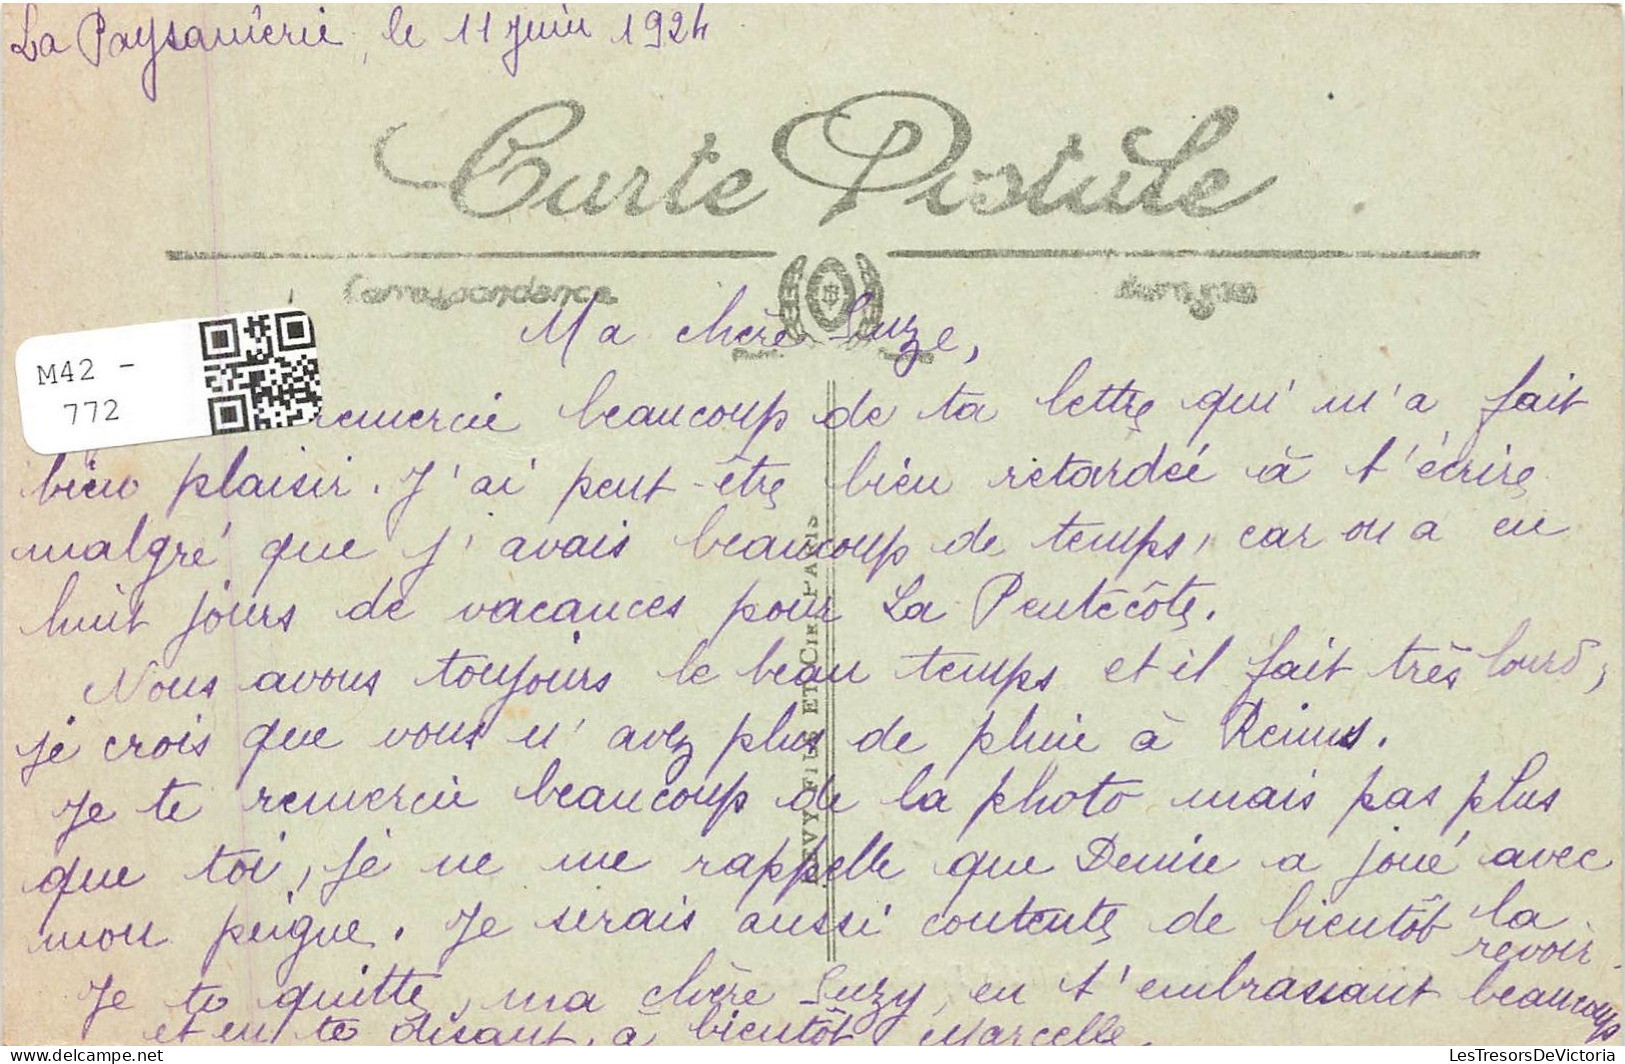 La Paysannerie, le 11 juin 1924
Carte Postale
Correspondance
Ma chère Suze,
M42 -
772
remercie beaucoup de ta lettre qui m'a fait
bien plaisir. J'ai peut-être bien retardée à t'écrire
malgré que j'avais beaucoup de temps, car on a eu
huit jours de vacances pour La Pentecôte.
Nous avons toujours le beau temps et il fait très lourd,
je crois que vous n'avez plus de pluie à Reims.
Je te remercie beaucoup de la photo mais pas plus
que toi, je ne me rappelle que Denise a joué avec
mon peigne. Je serais aussi contente de bientôt la
revoir.
Je te quitte, ma chère Suzy, en t'embrassant beaucoup
et en te disant, à bientôt Marcelle.
FILS ET CIE PARIS
LesTresorsDeVictoria